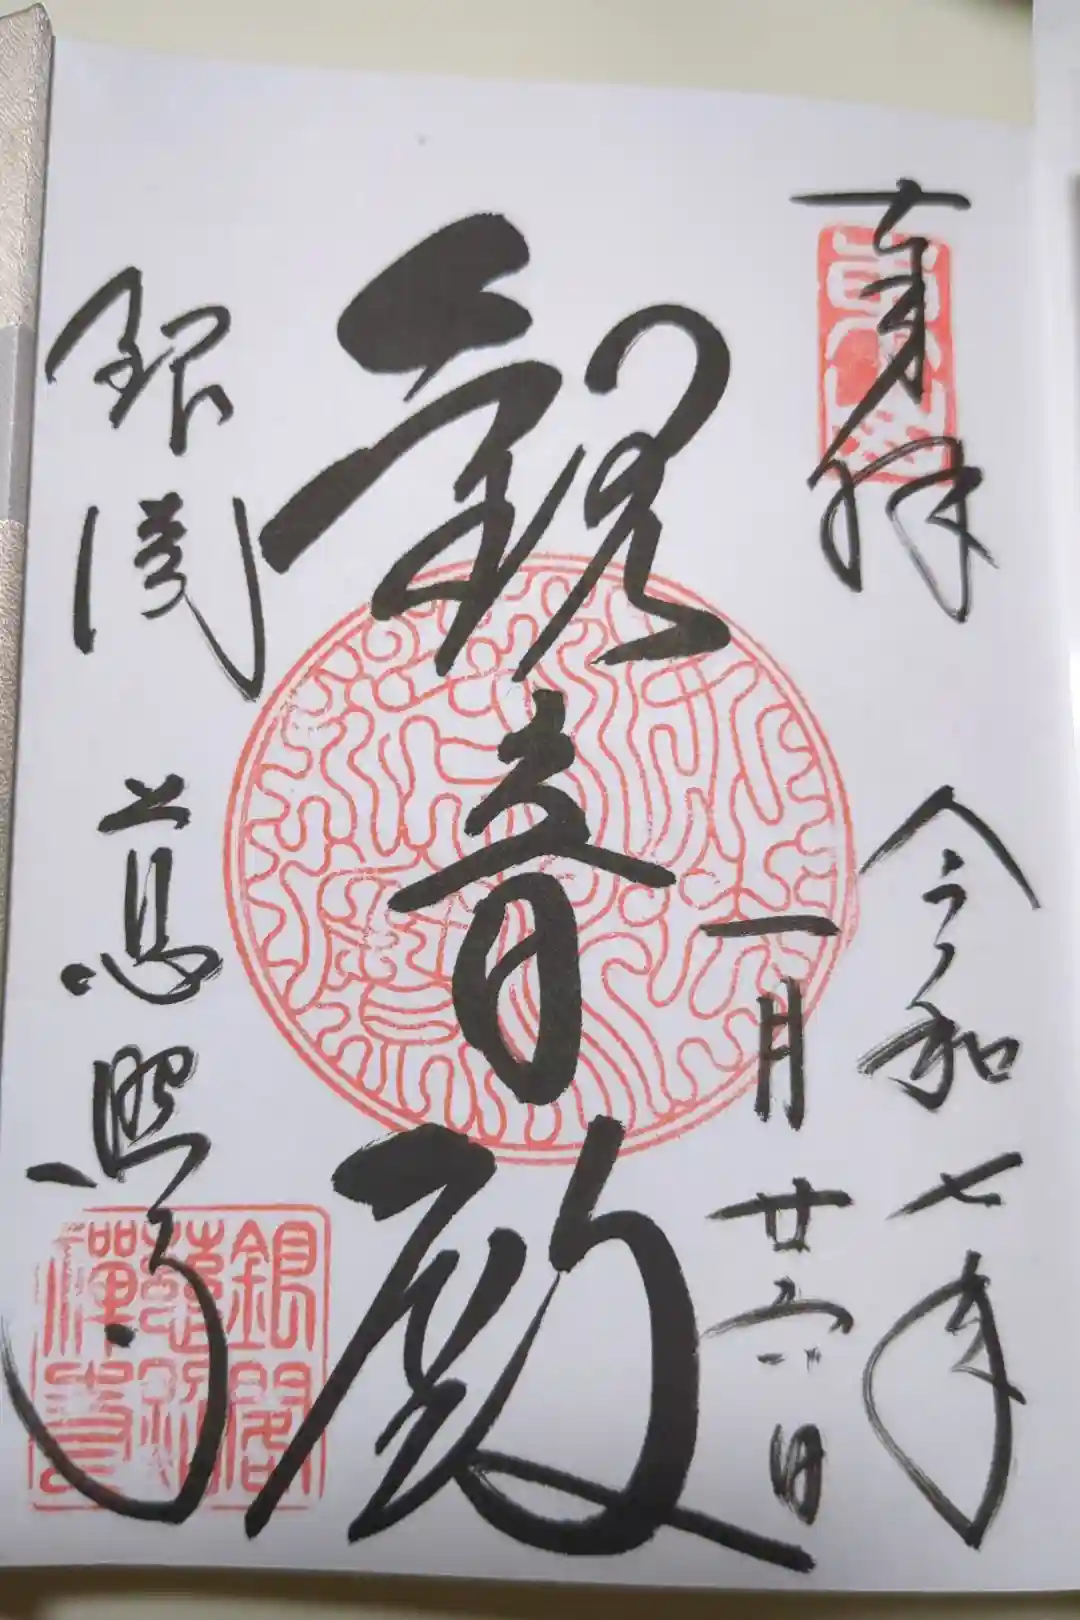 奉拝
令和七年
一月廿六日
観音殿
銀閣
慈照寺
銀閣
慈照
禪寺